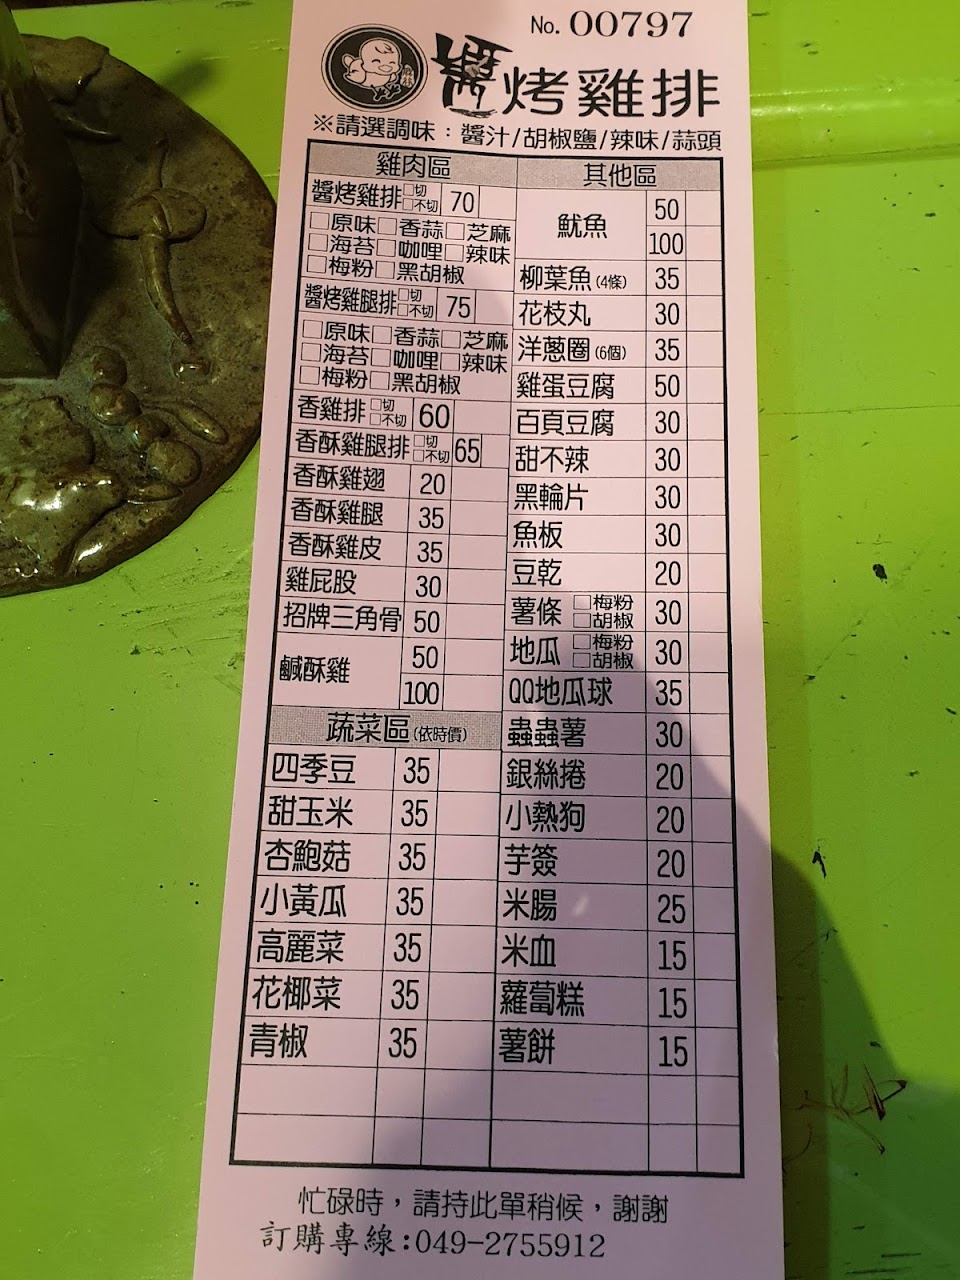 No. 00797
醬烤雞排
※請選調味：醬汁/胡椒鹽/辣味/蒜頭
雞肉區
醬烤雞排 □切 □不切 70
□原味□香蒜□芝麻
□海苔□咖哩□辣味
□梅粉□黑胡椒
醬烤雞腿排 □切 □不切 75
□原味□香蒜□芝麻
□海苔□咖哩□辣味
□梅粉□黑胡椒
香雞排 □切 □不切 60
香酥雞腿排 □切 □不切 65
香酥雞翅 20
香酥雞腿 35
香酥雞皮 35
雞屁股 30
招牌三角骨 50
鹹酥雞 50
100
蔬菜區(依時價)
四季豆 35
甜玉米 35
杏鮑菇 35
小黃瓜 35
高麗菜 35
花椰菜 35
青椒 35
其他區
魷魚 50
100
柳葉魚(4條) 35
花枝丸 30
洋蔥圈(6個) 35
雞蛋豆腐 50
百頁豆腐 30
甜不辣 30
黑輪片 30
魚板 30
豆乾 20
薯條 □梅粉 □胡椒 30
地瓜 □梅粉 □胡椒 30
QQ地瓜球 35
蟲蟲薯 30
銀絲捲 20
小熱狗 20
芋簽 20
米腸 25
米血 15
蘿蔔糕 15
薯餅 15
忙碌時，請持此單稍候，謝謝
訂購專線:049-2755912